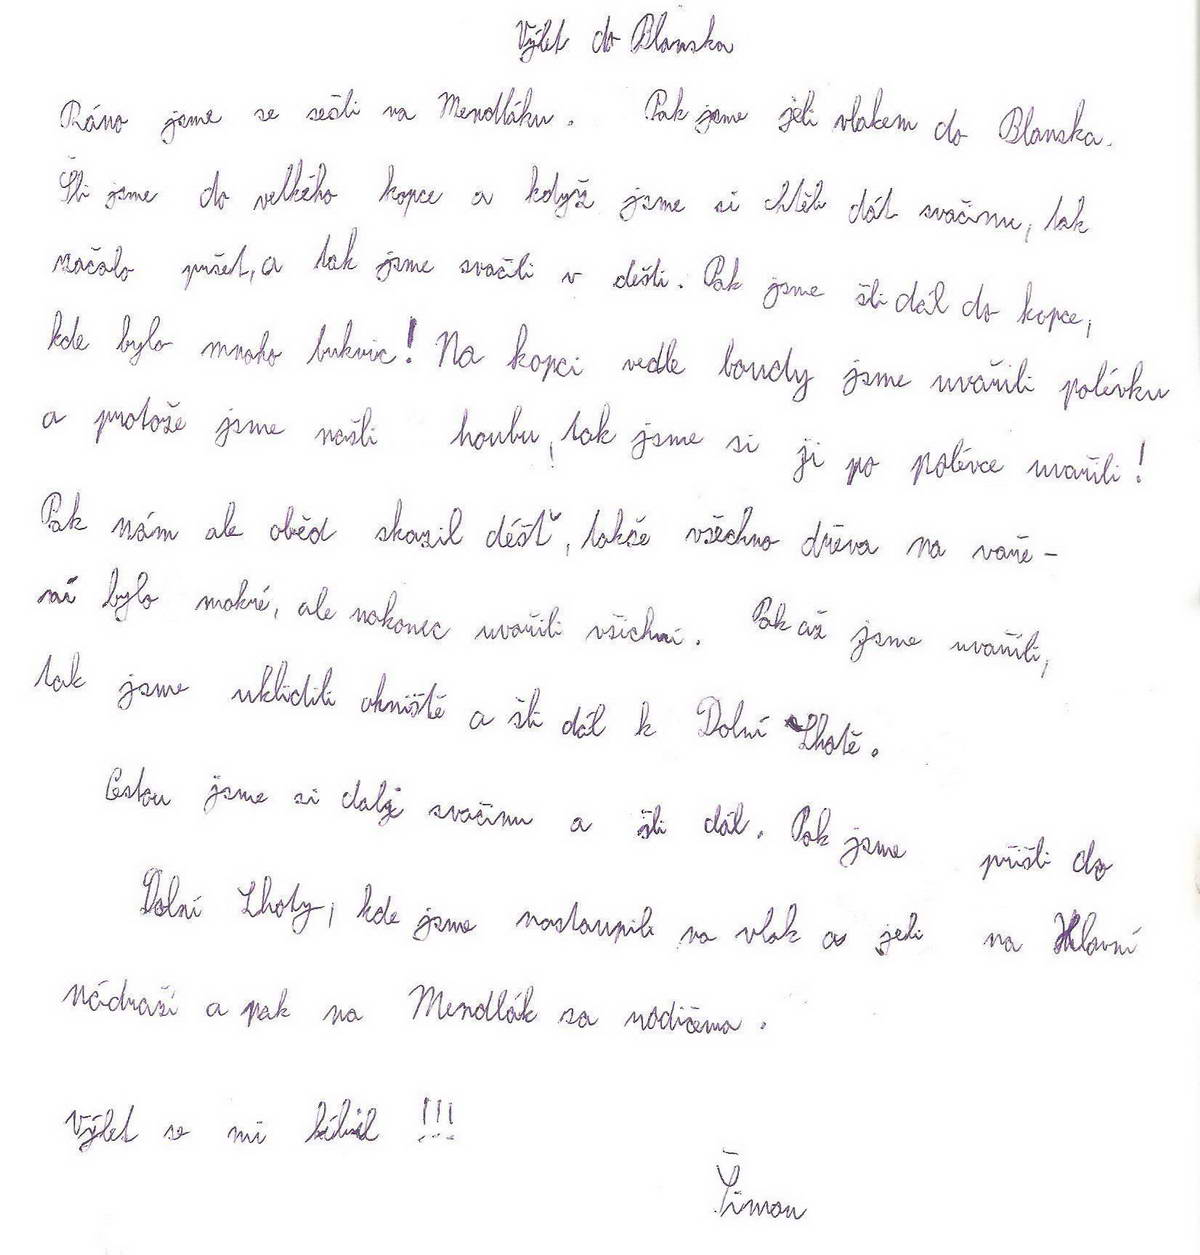 Výlet do Blanska
Ráno jsme se sešli na Mendláku. Pak jsme jeli vlakem do Blanska.
Šli jsme do velkého kopce a když jsme si chtěli dát svačinu, tak
začalo pršet, a tak jsme svačili v dešti. Pak jsme šli dál do kopce,
kde bylo mnoho bukvic! Na kopci vedle boudy jsme uvařili polévku
a protože jsme našli houbu, tak jsme si ji po polévce uvařili!
Pak nám ale oběd skazil déšť, takže všechno dřeva na vaře-
ní bylo mokré, ale nakonec uvařili všichni. Pak až jsme uvařili,
tak jsme uklidili ohniště a šli dál k Dolní Lhotě.
Cestou jsme si daly svačinu a šli dál. Pak jsme přišli do
Dolní Lhoty, kde jsme nastoupili na vlak a jeli na Hlavní
nádraží a pak na Mendlák za rodičema.
Výlet se mi líbil !!!
Šimon